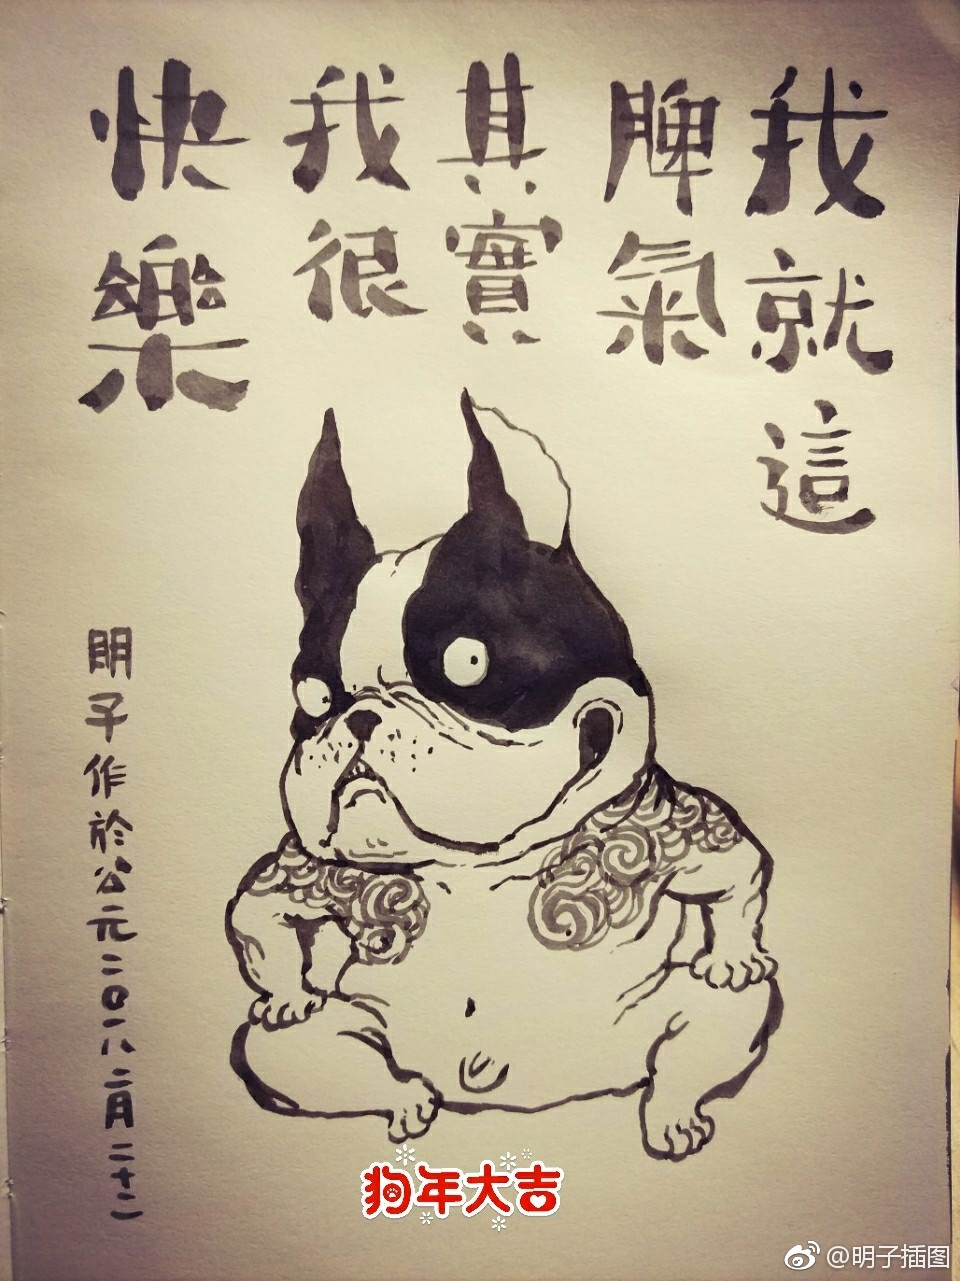 我就這
脾氣
其實
我很
快樂
明子作於公元二〇一八二月二十二
狗年大吉
@明子插图